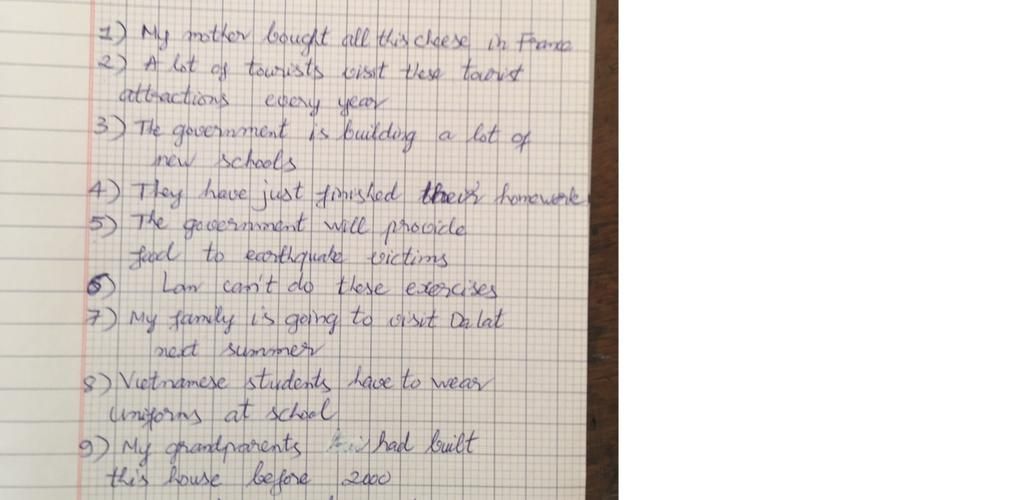 1) My mother bought all this cheese in France
2) A lot of tourists visit these tourist
attractions every year
3) The government is building a lot of
new schools
4) They have just finished their homework
5) The government will provide
food to earthquake victims
6) Lan can't do these exercises
7) My family is going to visit Da lat
next summer
8) Vietnamese students have to wear
uniforms at school
9) My grandparents had built
this house before 2000